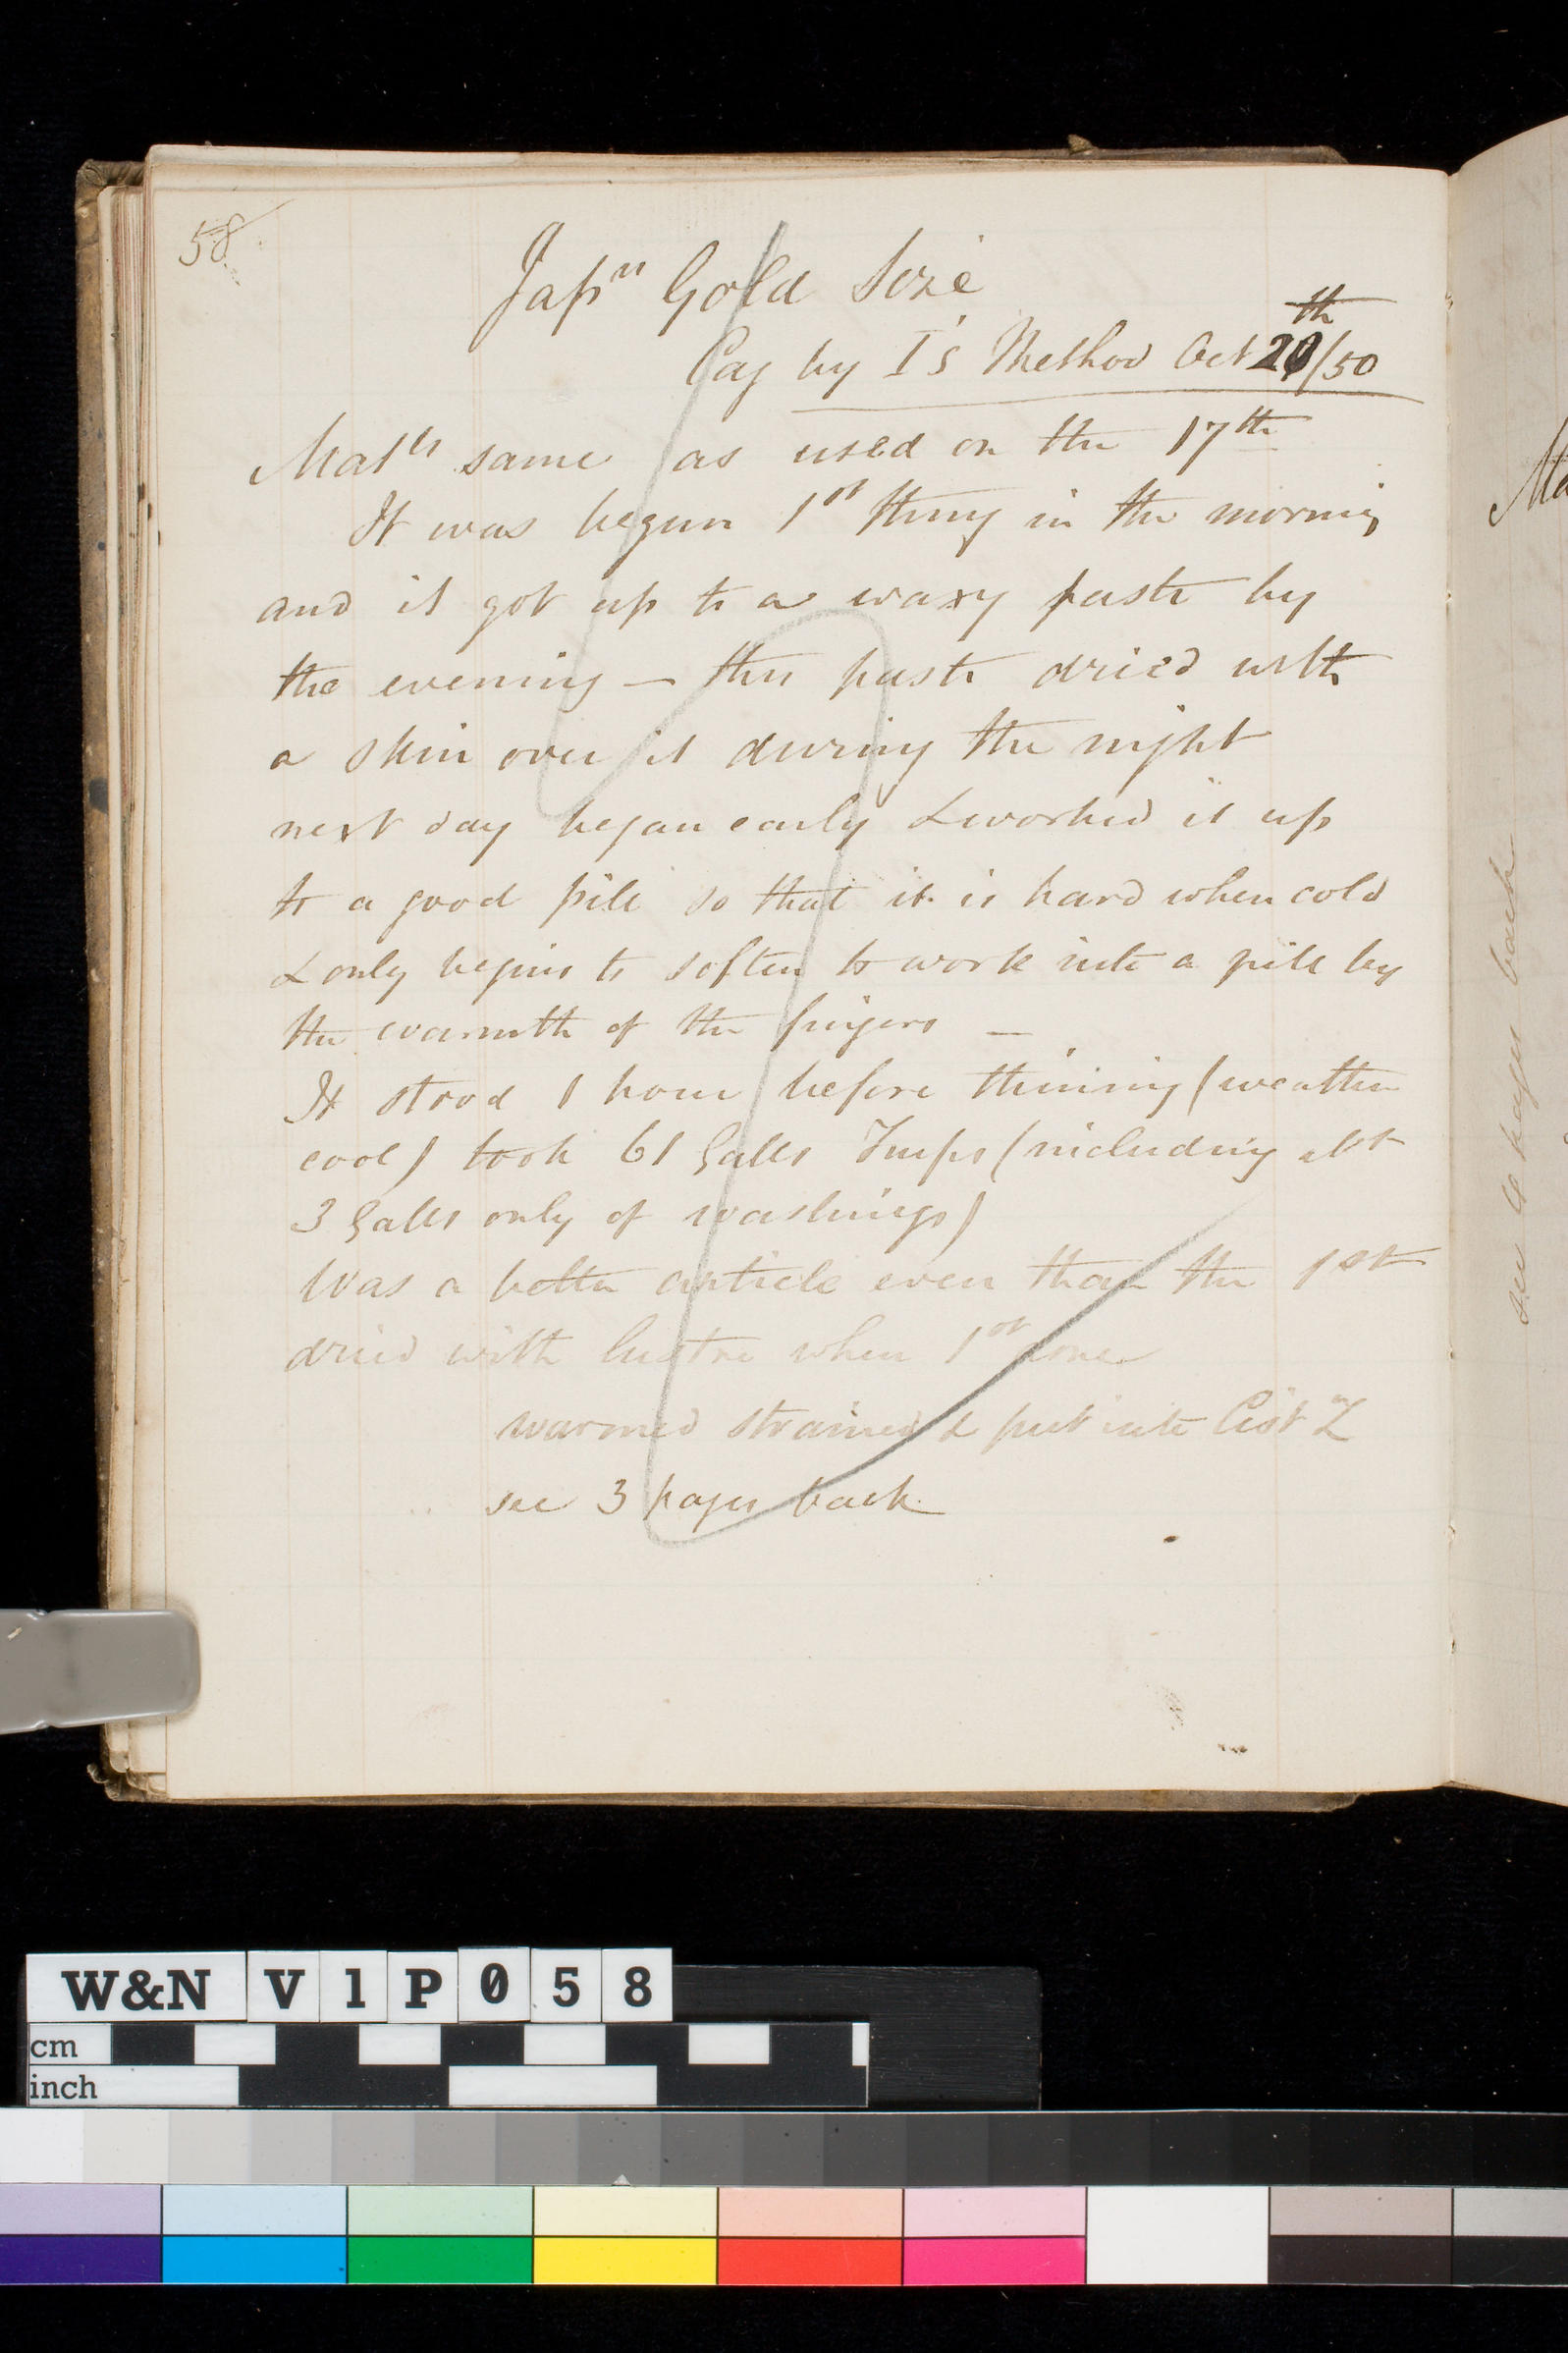 58
Japn Gold Size
by I's Method Oct 20th/50
Matls same as used on the 17th
It was begun 1st thing in the morning
and it got up to a waxy paste by
the evening — this paste dried with
a skin over it during the night
next day began early & worked it up
to a good pill so that it is hard when cold
& only begins to soften to work into a pill by
the warmth of the fingers —
It stood 1 hour before thinning (weather
cool) took 61 Galls Turps (including abt
3 Galls only of washings)
Was a better article even than the 1st
dried with lustre when 1st done
warmed strained & put into Cist Z
see 3 pages back
Ma
see 4 pages back
W&N V1P058
cm
inch